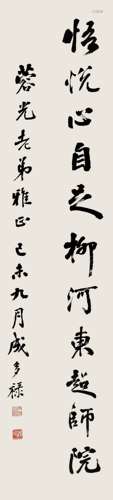 悟悦心自足柳河東超師院
蓉光老弟雅正己未九月成多禄